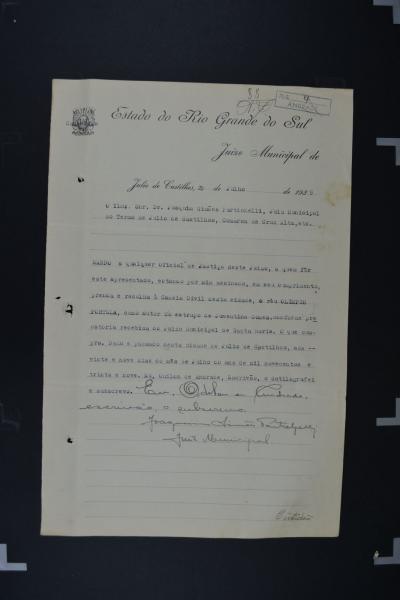 88
Fls. 4
ANDRADE
Estado do Rio Grande do Sul
Juizo Municipal de
Julio de Castilhos, 29 de Julho de 1939.
O Ilmo. Snr. Dr. Joaquim Simões Portionelli, Juiz Municipal
do Termo de Julio de Castilhos, Comarca de Cruz Alta, etc.
MANDO a qualquer oficial de Justiça deste Juizo, a quem fôr
este apresentado, estando por mim assinado, em seu cumprimento,
prenda e recolha á Cadeia Civil desta cidade, o réu OLIMPIO
PORTELA, como autor do estrupo de Juventina Gomes, conforme pre
catoria recebida do Juizo Municipal de Santa Maria. O que cum-
pra. Dado e passado nesta cidade de Julio de Castilhos, aos --
vinte e nove dias do mês de Julho do ano de mil novecentos e
trinta e nove. Eu, Odilon de Andrade, Escrivão, o datilografei
e subscrevo. Eu, Odilon de Andrade,
escrivão, o subscrevo.
Joaquim Simões
Juiz Municipal
Certidão